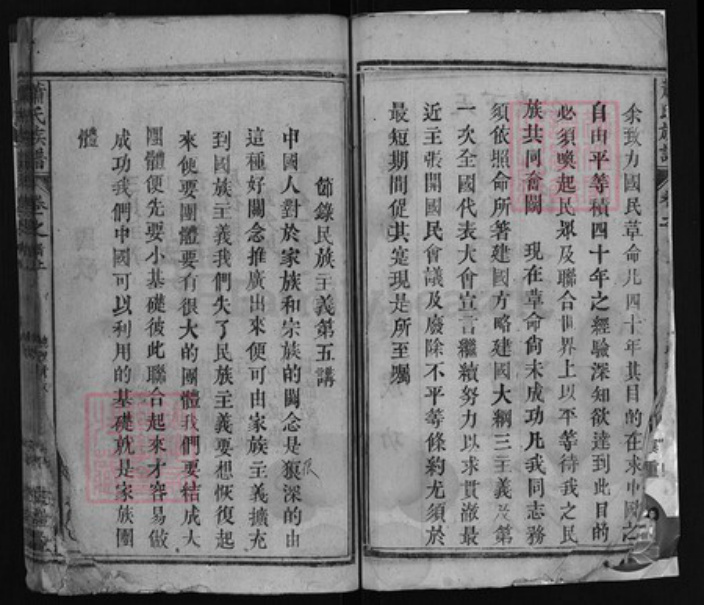 余致力國民革命凡四十年其目的在求中國之
自由平等積四十年之經驗深知欲達到此目的
必須喚起民眾及聯合世界上以平等待我之民
族共同奮鬭　現在革命尙未成功凡我同志務
須依照余所著建國方略建國大綱三主義及第
一次全國代表大會宣言繼續努力以求貫澈最
近主張開國民會議及廢除不平等條約尤須於
最短期間促其寔現是所至囑
節錄民族主義第五講
中國人對於家族和宗族的關念是狠深的由
很
這種好關念推廣出來便可由家族主義擴充
到國族主義我們失了民族主義要想恢復起
來便要團體要有很大的團體我們要結成大
團體便先要小基礎彼此聯合起來才容易做
成功我們中國可以利用的基礎就是家族團
體
氏族譜